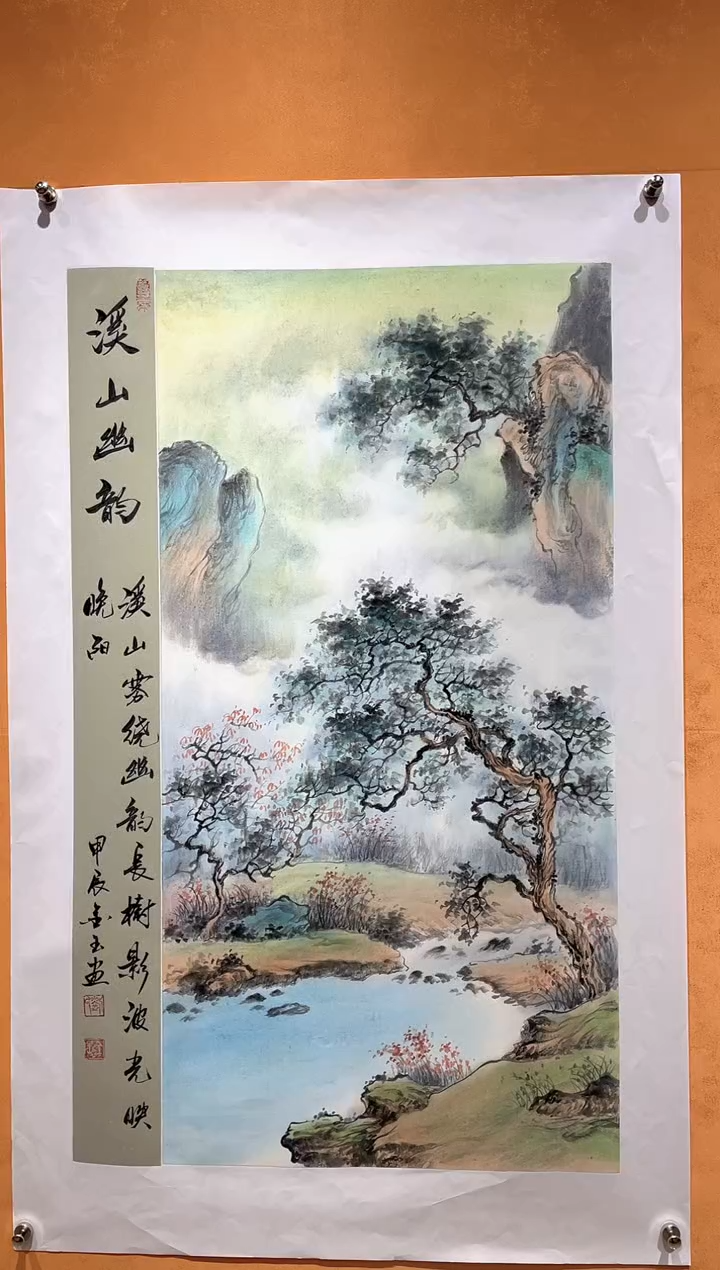 溪山幽韵
溪山雾绕幽韵长树影波光映
晚阳
甲辰金玉画